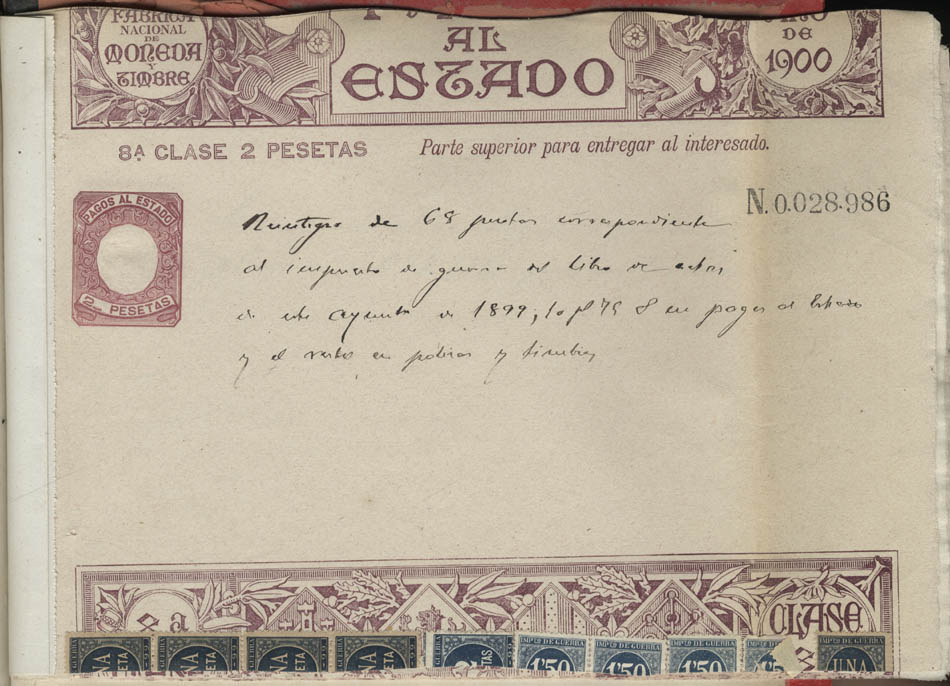 FABRICA
NACIONAL
DE
MONEDA
Y
TIMBRE
AL
ESTADO
DE
1900
8ª CLASE 2 PESETAS
Parte superior para entregar al interesado.
N. 0.028.986
PAGOS AL ESTADO
2 PESETAS
Reintegro de 68 pesetas correspondiente
al impuesto de guerra del libro de actas
de este Ayunto de 1899; 8 en pagos al Estado
y el resto en polizas y timbres
8a CLASE
UNA
UNA
UNA
UNA
IMPto DE GUERRA
1'50
IMPto DE GUERRA
1'50
IMPto DE GUERRA
1'50
IMPto DE GUERRA
UNA